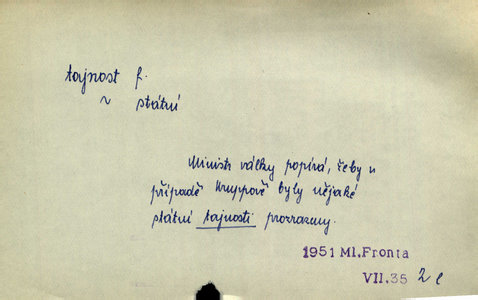 tajnost f.
~ státní
Ministr války popírá, žeby v
případě Kruppově byly nějaké
státní tajnosti prozrazeny.
1951 Ml.Fronta
VII.35